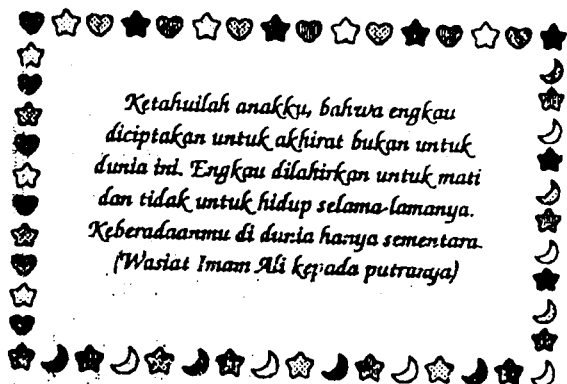 Ketahuilah anakku, bahwa engkau
diciptakan untuk akhirat bukan untuk
dunia ini. Engkau dilahirkan untuk mati
dan tidak untuk hidup selama-lamanya.
Keberadaanmu di dunia hanya sementara.
(Wasiat Imam Ali kepada putranya)